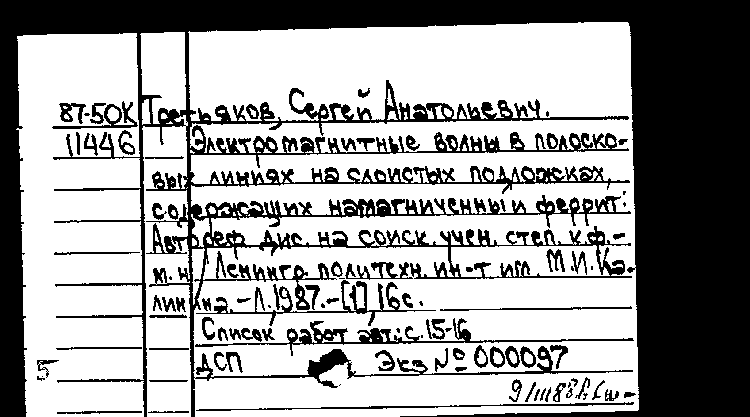 87-50К Третьяков, Сергей Анатольевич.
11446 Электромагнитные волны в полоско-
вых линиях на слоистых подложках,
содержащих намагниченный феррит:
Автореф. дис. на соиск. учен. степ. к.ф.-
м.н. / Ленингр. политехн. ин-т им. М.И. Ка-
линина. - Л., 1987. - [1], 16 с.
Список работ авт.: с. 15-16
ДСП Экз № 000097
5
9/III 88